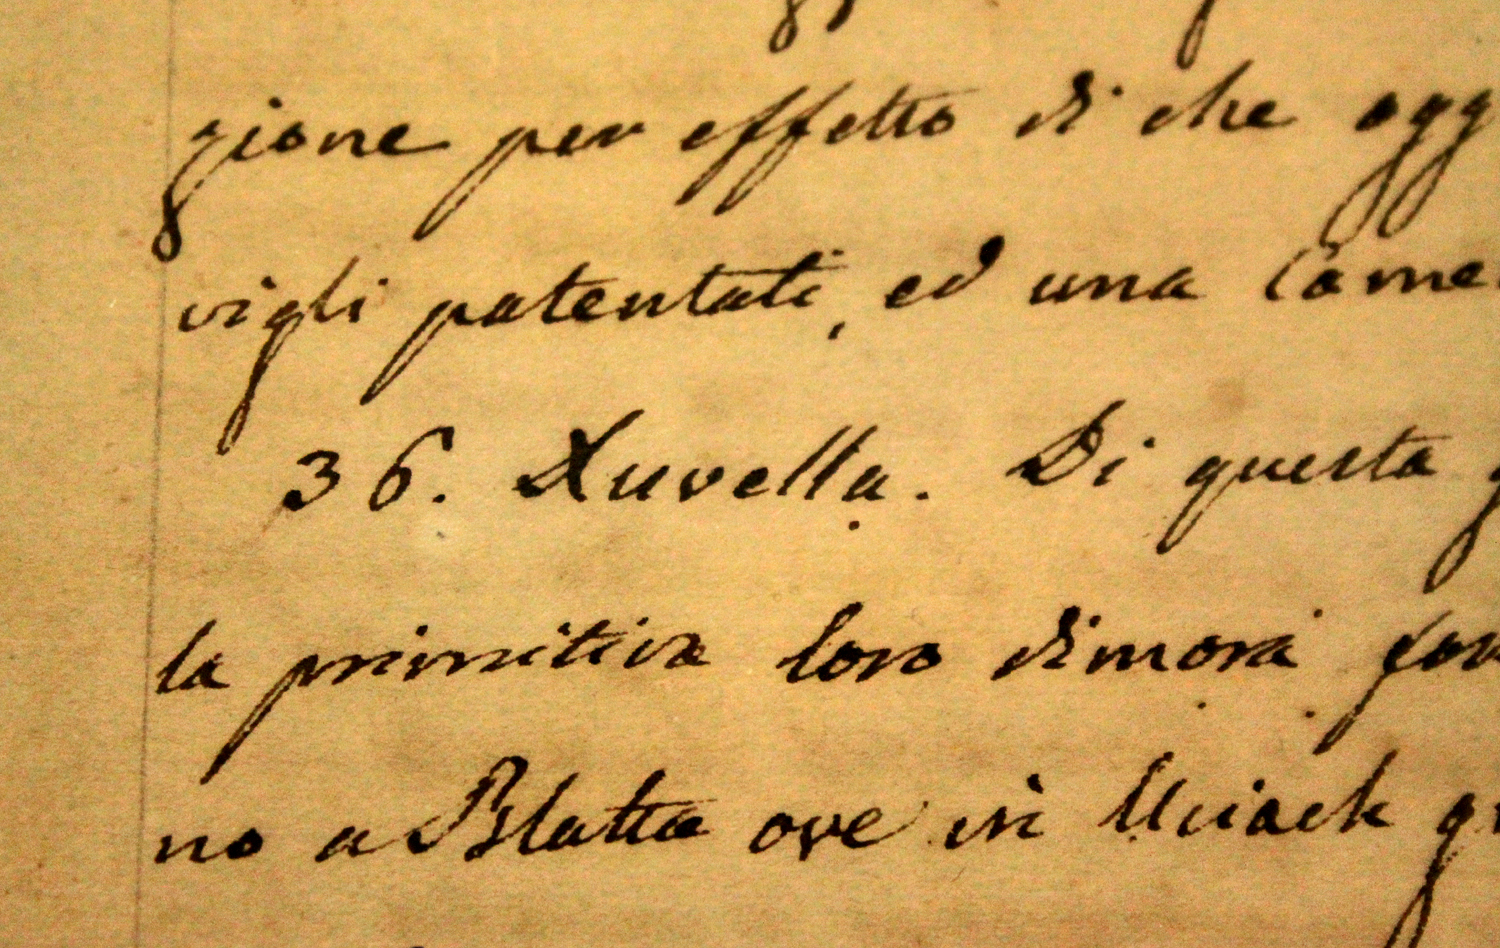 gione per effetto di che ogg
vigli patentati, ed una Came
36. Xuvella. Di questa
la primitiva loro dimora fu
no a Blatta ove in